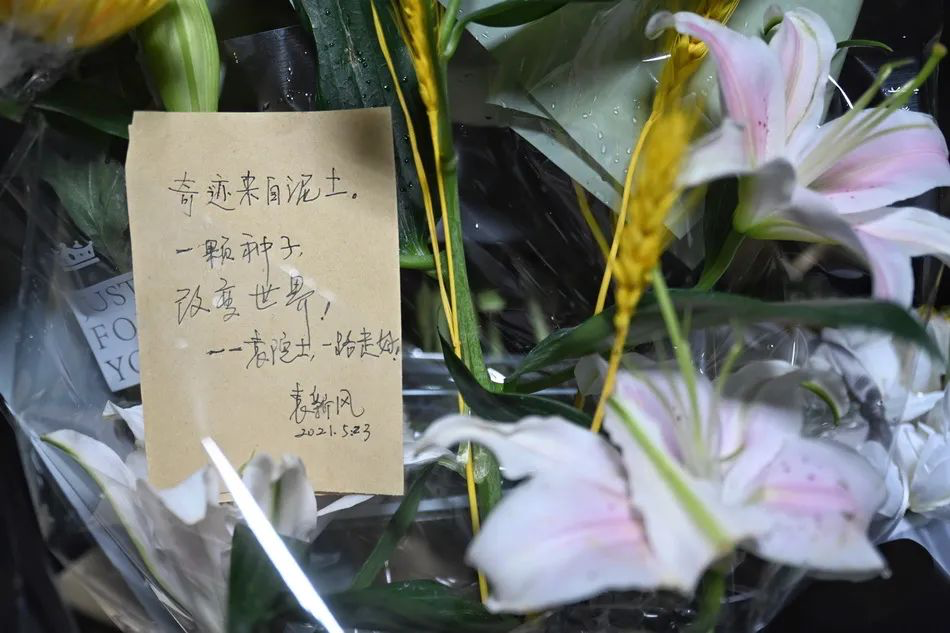 奇迹来自泥土。
一颗种子,
改变世界!
——袁院士,一路走好。
袁新风
2021.5.23
JUST
FOR
YOU